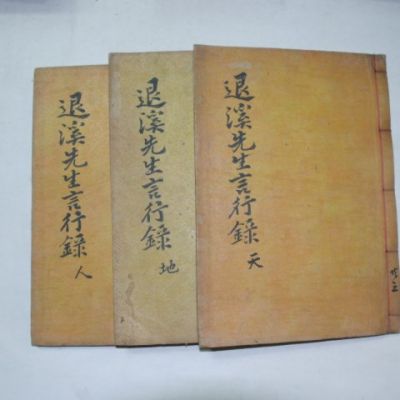 退溪先生言行錄 天
共三
退溪先生言行錄 地
退溪先生言行錄 人